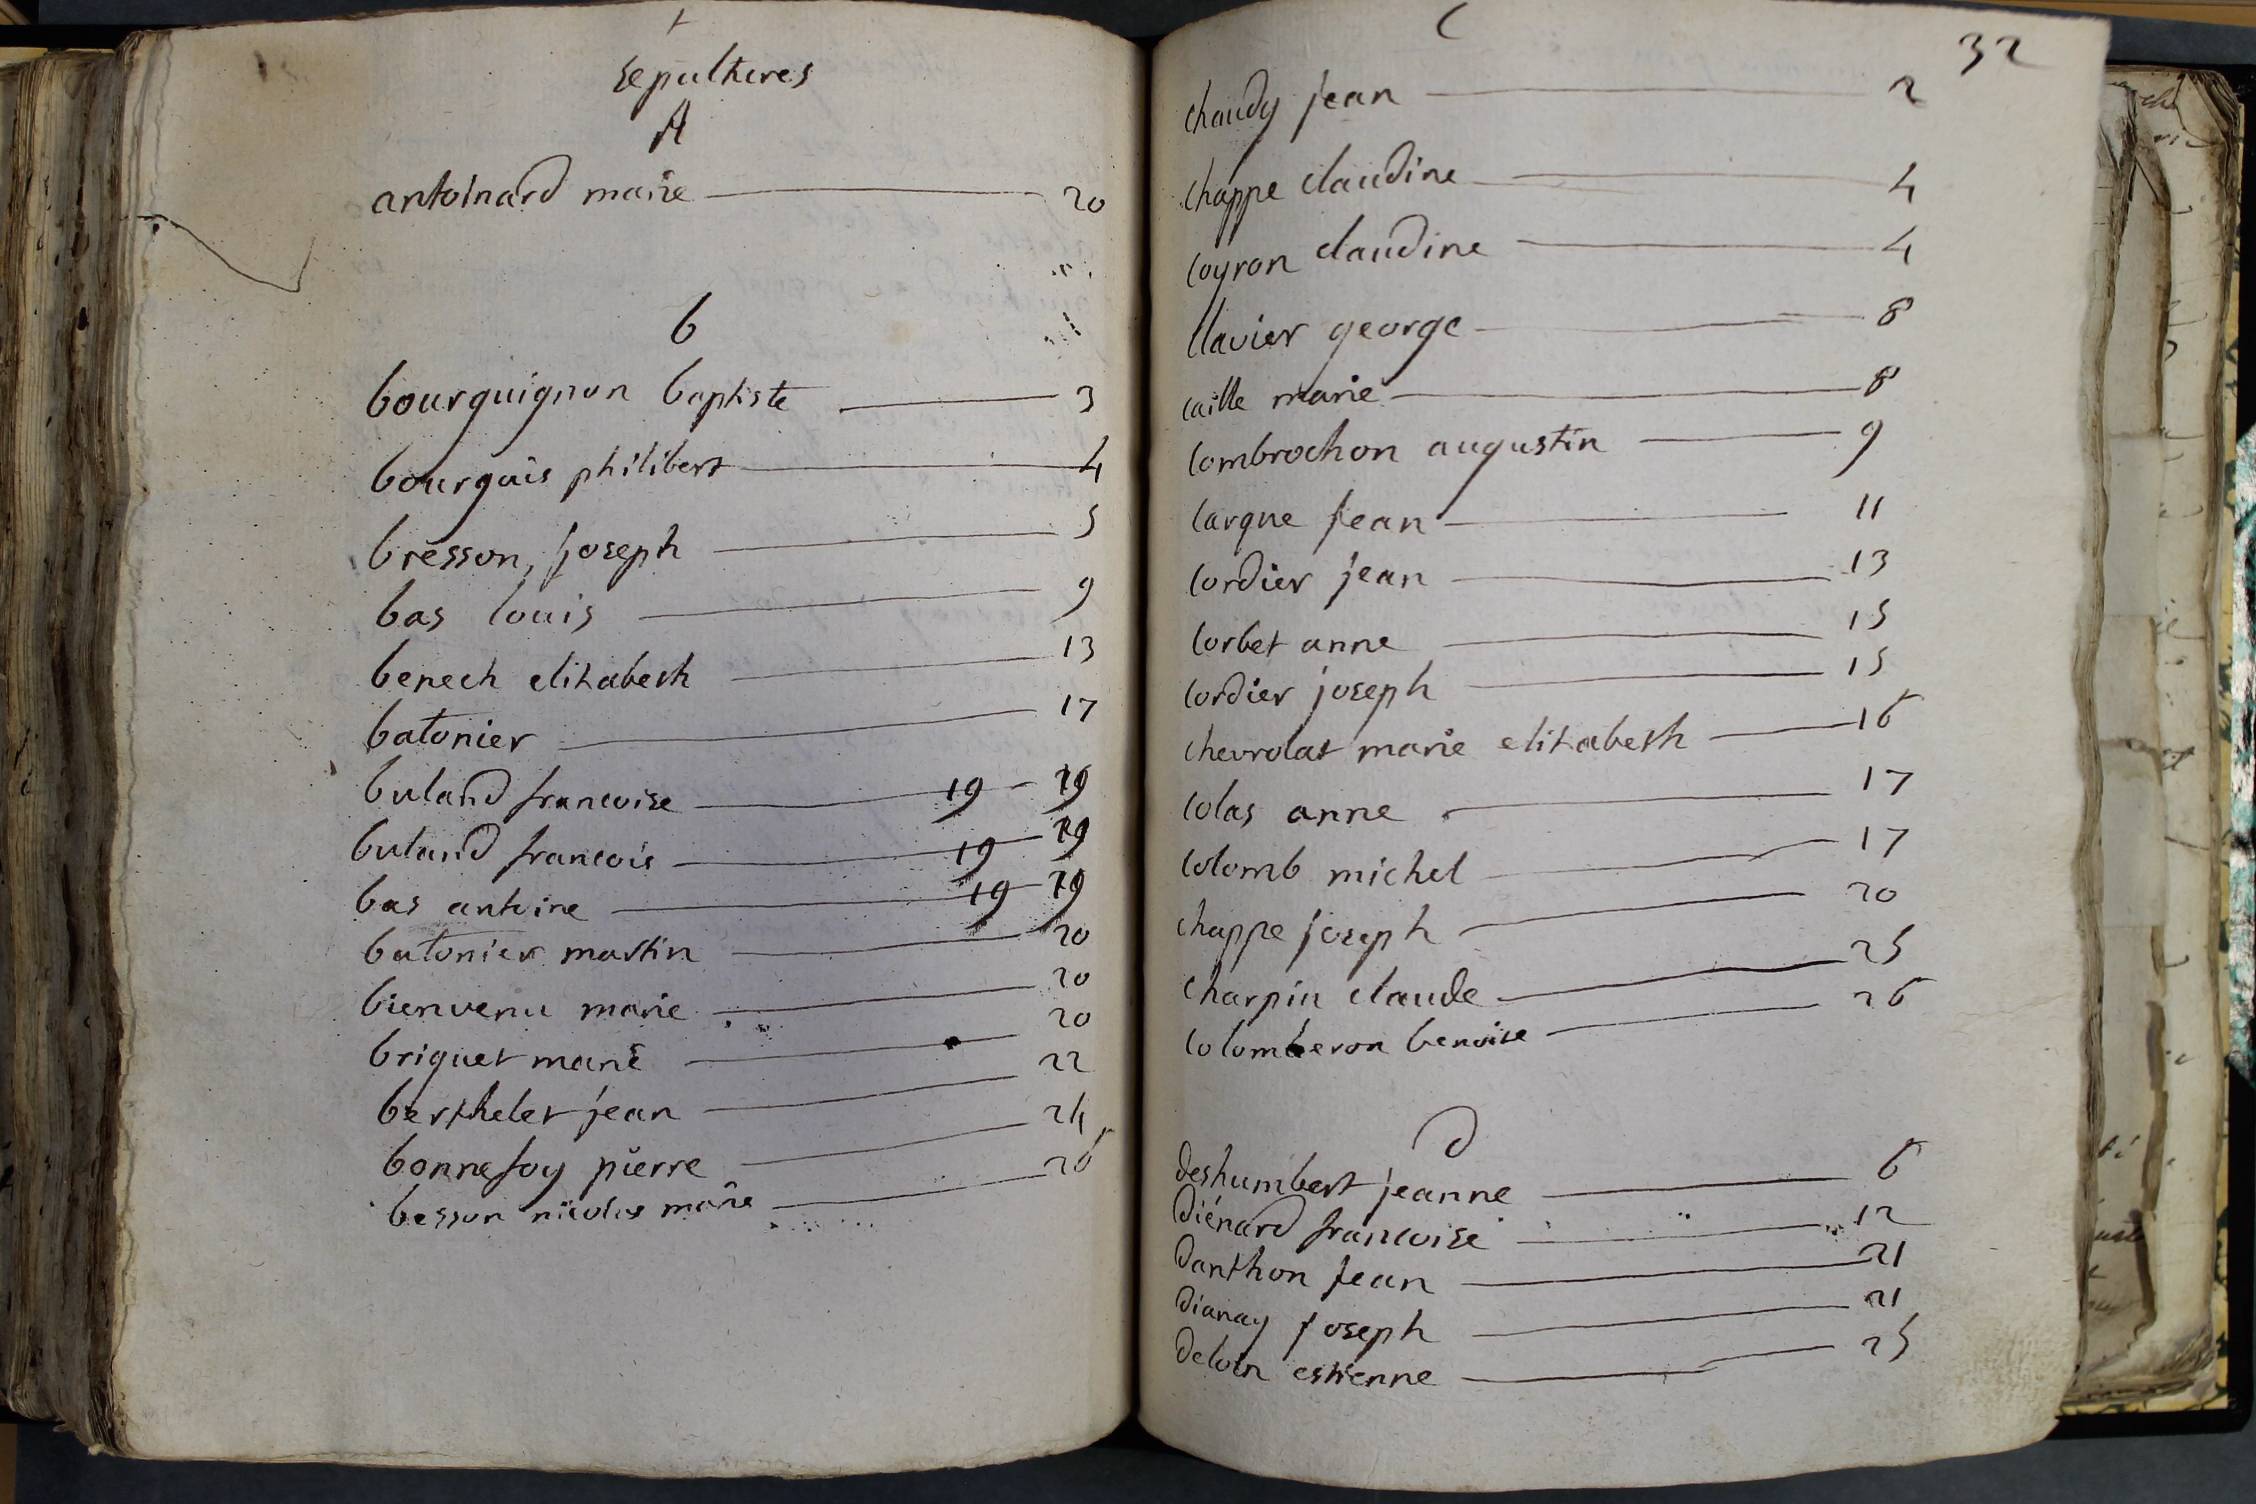 sepultures
A
antoinard marie 20
b
bourguignon baptiste 3
bourgois philibert 4
bresson, joseph 5
bas louis 9
benech elizabeth 13
batonier 17
buland francoise 19 - 19
buland francois 19 - 19
bas antoine 19 - 19
batonier martin 20
bienvenu marie 20
briquet marie 20
berthelet jean 22
bonnefoy pierre 24
besson nicolas marie 26
C
32
chaudy jean 2
chappe claudine 4
coyron claudine 4
clavier george 8
caille marie 8
combrochon augustin 9
carque jean 11
cordier jean 13
corbet anne 15
cordier joseph 15
chevrolat marie elizabeth 16
colas anne 17
colomb michel 17
chappe joseph 20
charpin claude 25
colomberon benoise 26
d
deshumbert jeanne 6
diénard francoise 12
danthon jean 21
dianay joseph 21
deloin estienne 25